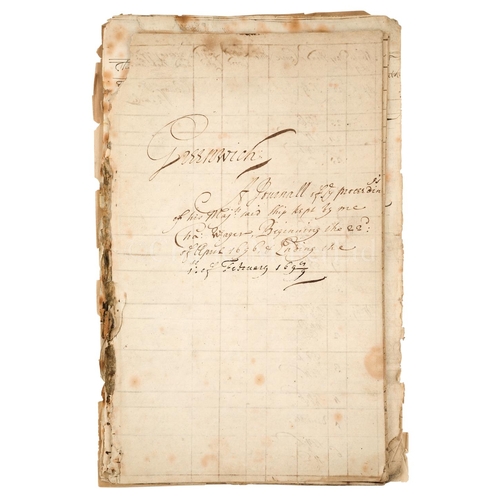 Greenwich
A Journall of ye proceedings
of his Majts said ship kept by me
Cha: Wager Beginning the 22d:
of April 1696 & Ending the
1st of February 1696/7